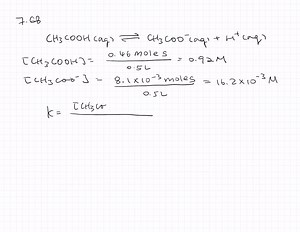 7.68
CH3COOH(aq) ⇌ CH3COO⁻(aq) + H⁺(aq)
[CH3COOH] = 0.46 moles / 0.5L = 0.92M
[CH3COO⁻] = 8.1×10⁻³ moles / 0.5L = 16.2×10⁻³ M
K = [CH3Co